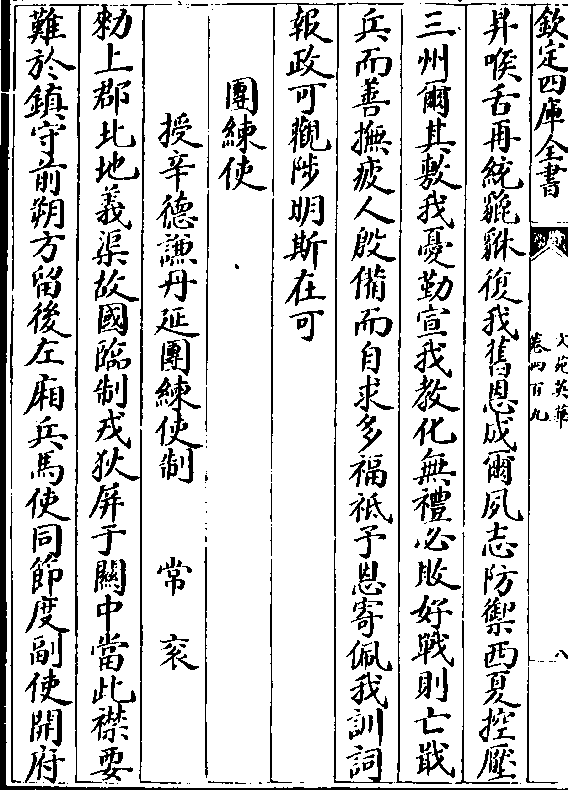 欽定四庫全書
文苑英華
卷四百九
八
昇喉舌再統貔貅復我舊恩成爾夙志防禦西夏控壓
三州爾其敷我憂勤宣我教化無禮必敗好戰則亡戢
兵而善撫疲人殷備而自求多福祗予恩寄佩我訓詞
報政可觀陟明斯在可
團練使
授辛德謙丹延團練使制
常衮
勑上郡北地義渠故國臨制戎狄屏于關中當此襟要
難於鎮守前朔方留後左廂兵馬使同節度副使開府